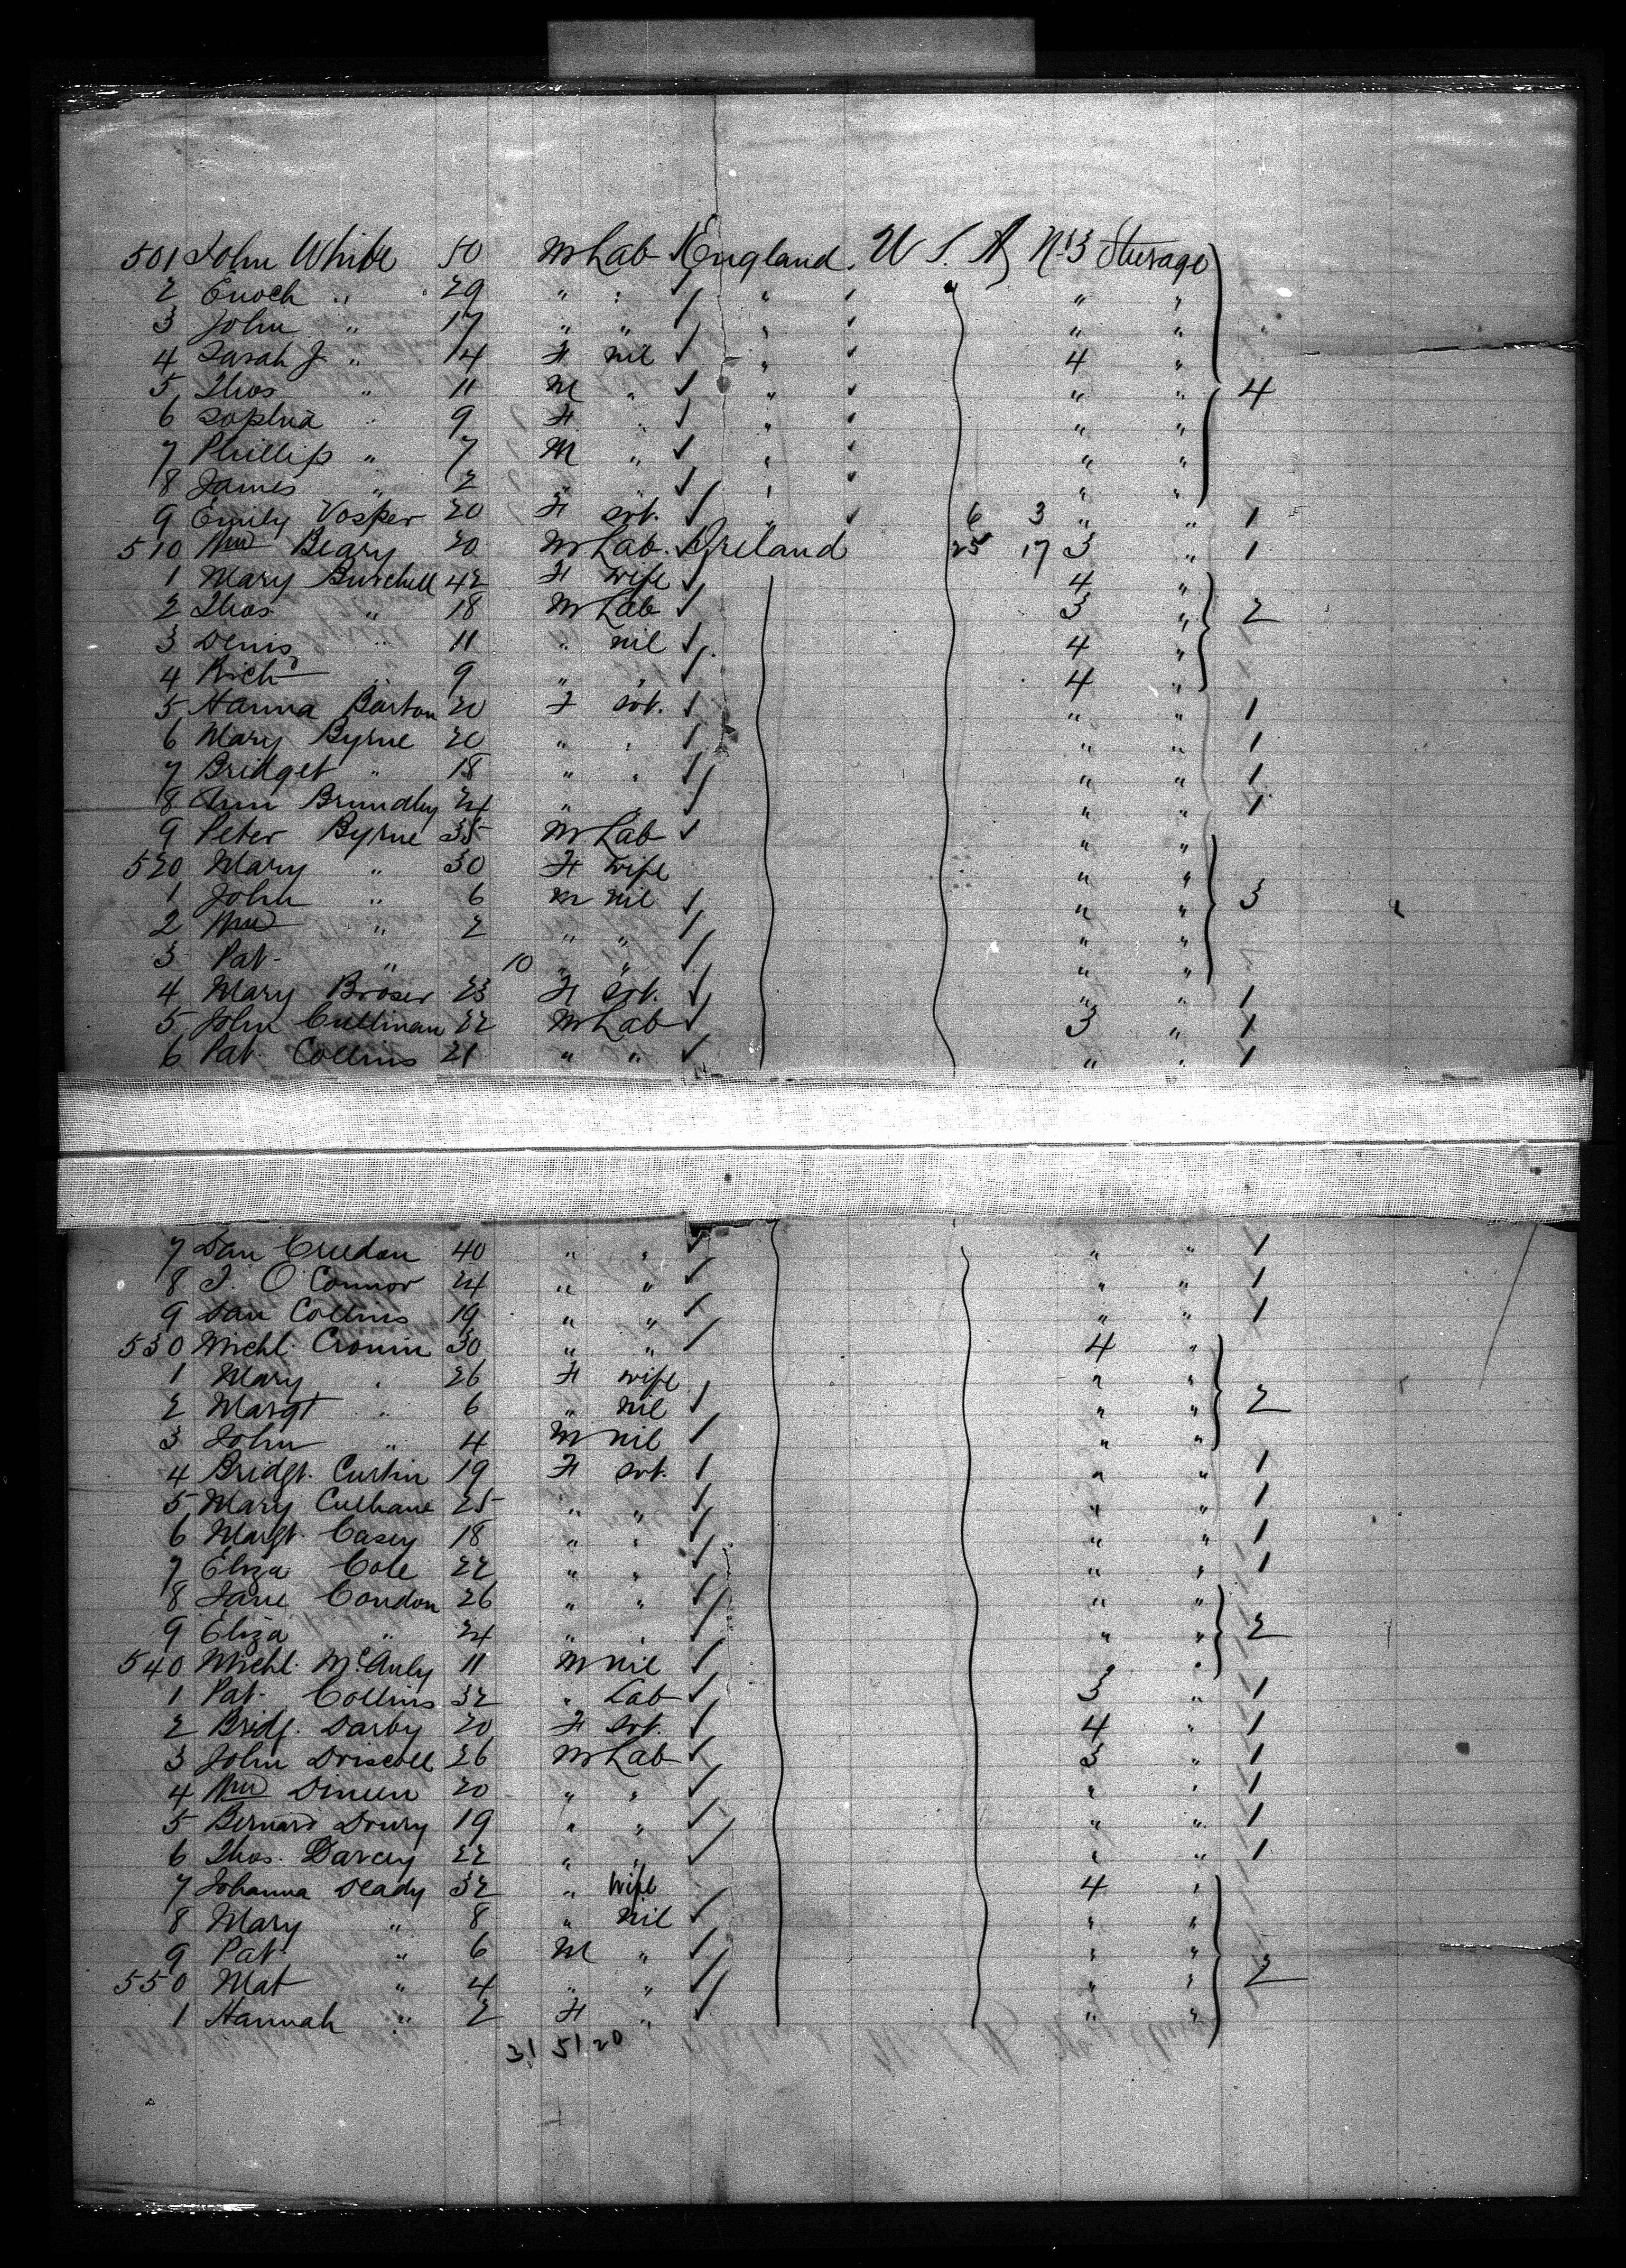 501 John White 50 M Lab England U S A No 3 Steerage
2 Enoch " 29 " " " " "
3 John " 17 " " " " "
4 Sarah J " 14 F nil " 4 "
5 Thos " 11 M " " " " 4
6 Sophia " 9 F " " " "
7 Phillip " 7 M " " " "
8 James " 2 " " " " "
9 Emily Vosper 20 F svt. " 6 3 " " 1
510 Wm Beary 20 M Lab. Ireland 25 17 3 " 1
1 Mary Burchell 42 F wife 4 "
2 Thos " 18 M Lab 3 " 2
3 Denis " 11 " nil 4 "
4 Richd " 9 " " 4 "
5 Hanna Barton 20 F svt. " " 1
6 Mary Byrne 20 " " " " 1
7 Bridget " 18 " " " " 1
8 Ann Brundley 24 " " " " 1
9 Peter Byrne 35 M Lab " "
520 Mary " 30 F wife " "
1 John " 6 M nil " " 3
2 Wm " 2 " " " "
3 Pat " 10 " " " "
4 Mary Broser 23 F svt. " " 1
5 John Cullinan 22 M Lab 3 " 1
6 Pat Collins 21 " " " " 1
7 Dan Creedon 40 " " " " 1
8 J. O'Connor 24 " " " " 1
9 Dan Collins 19 " " " " 1
530 Michl. Cronin 30 " " 4 "
1 Mary " 26 F wife " "
2 Margt " 6 " nil " " 2
3 John " 4 M nil " "
4 Bridgt. Curtin 19 F svt. " " 1
5 Mary Culhane 25 " " " " 1
6 Margt. Casey 18 " " " " 1
7 Eliza Cole 22 " " " " 1
8 Jane Condon 26 " " " "
9 Eliza " 24 " " " " 2
540 Michl. McAuly 11 M nil " "
1 Pat Collins 32 " Lab 3 " 1
2 Bridg. Darby 20 F svt. 4 " 1
3 John Driscoll 26 M Lab 3 " 1
4 Wm Dineen 20 " " " " 1
5 Bernard Drury 19 " " " " 1
6 Thos. Darcey 22 " " " " 1
7 Johanna Deady 32 " wife 4 "
8 Mary " 8 " nil " "
9 Pat " 6 M " " "
550 Mat " 4 " " " " 2
1 Hannah " 2 F " " "
31 51 20